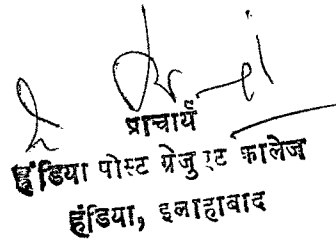 प्राचार्य
हंडिया पोस्ट ग्रेजुएट कालेज
हंडिया, इलाहाबाद